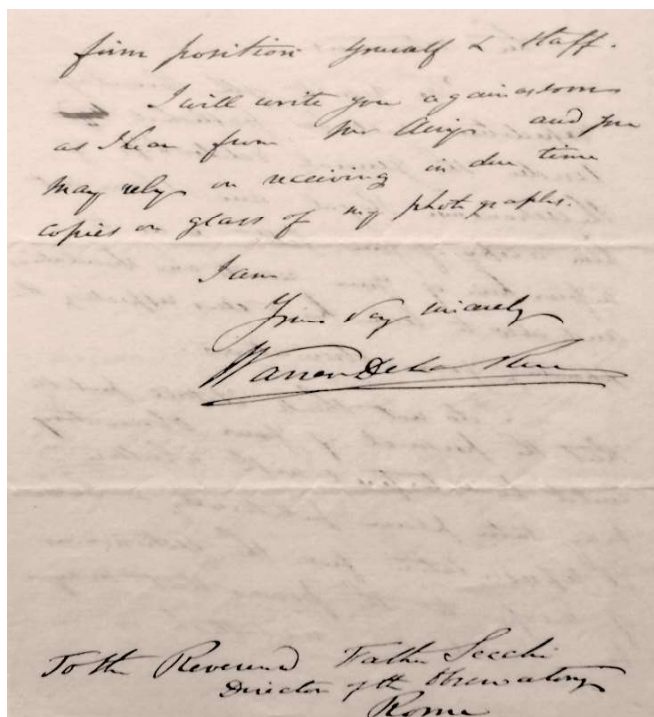 firm position yourself & staff.
I will write you again as soon
as I hear from Mr Airy and you
may rely on receiving in due time
copies on glass of my photographs.
I am
Yours very sincerely
Warren De la Rue
To the Reverend Father Secchi
Director of the Observatory
Rome